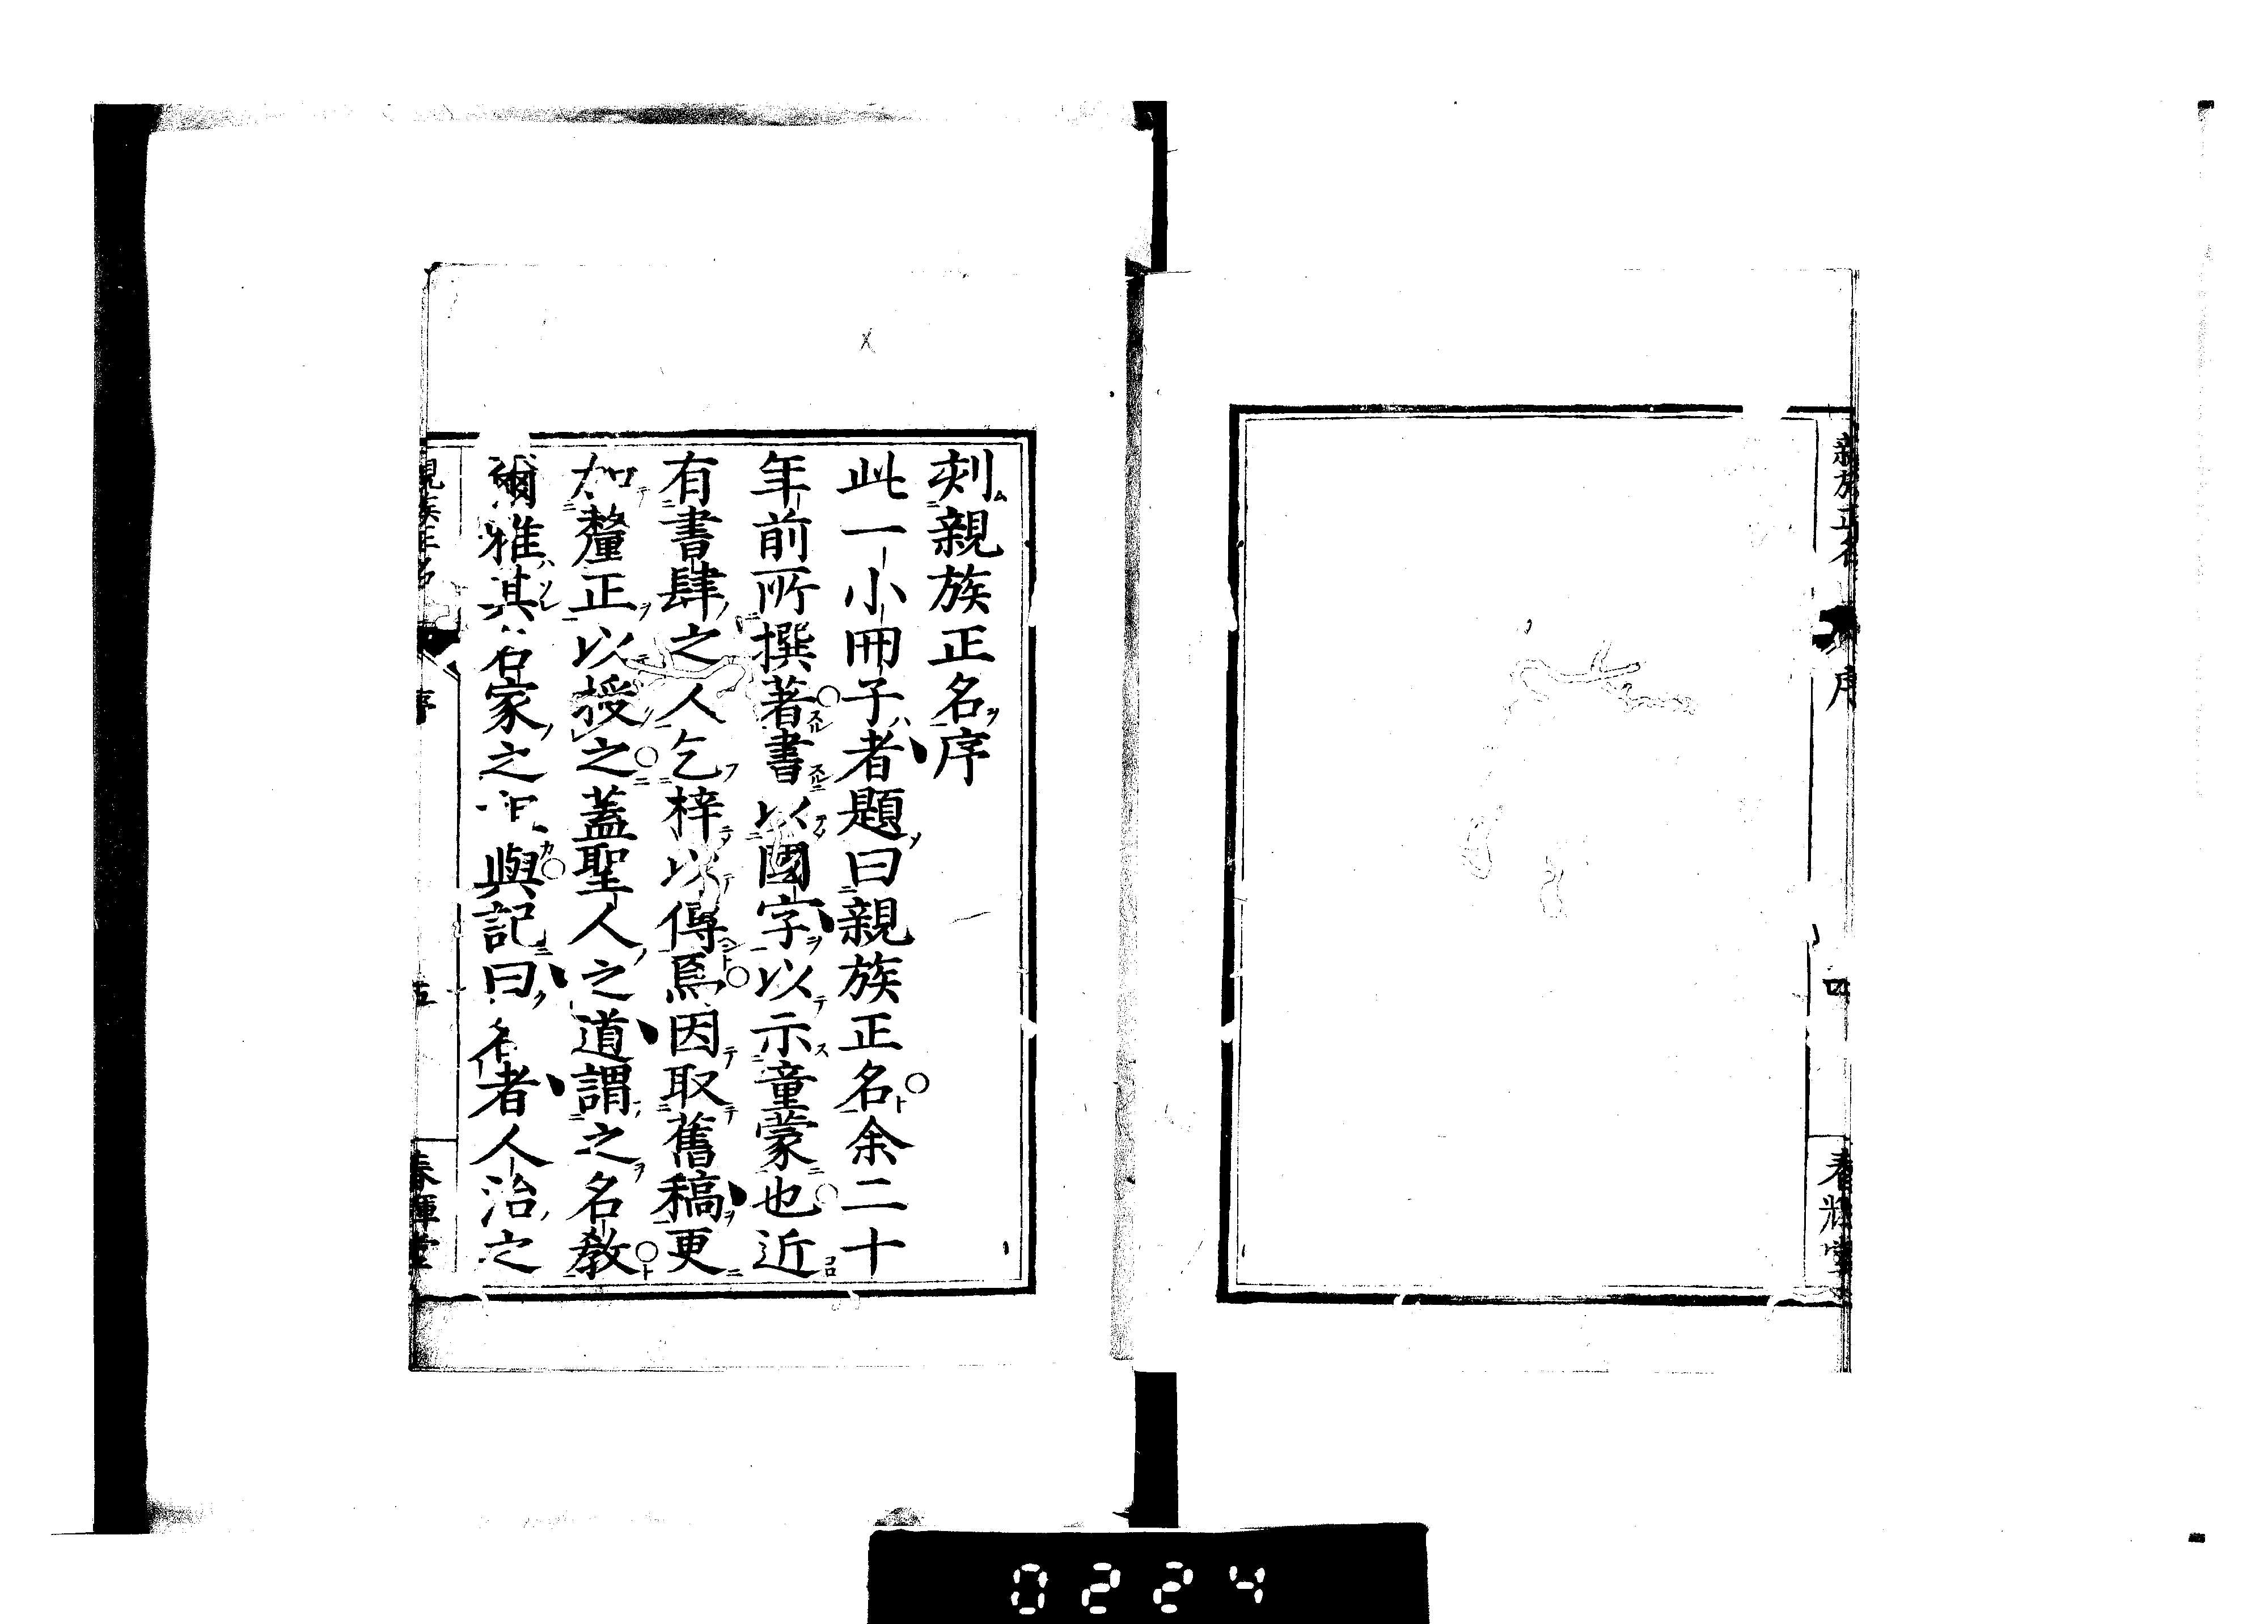 親族正名 序 四 春暉堂
刻親族正名序
此一小冊子者題曰親族正名余二十
年前所撰著書以國字以示童蒙也近
有書肆之人乞梓以傳焉因取舊稿更
加釐正以授之蓋聖人之道謂之名教
爾雅其名家之與記曰名者人治之
親族正名 序 五 春暉堂
0224